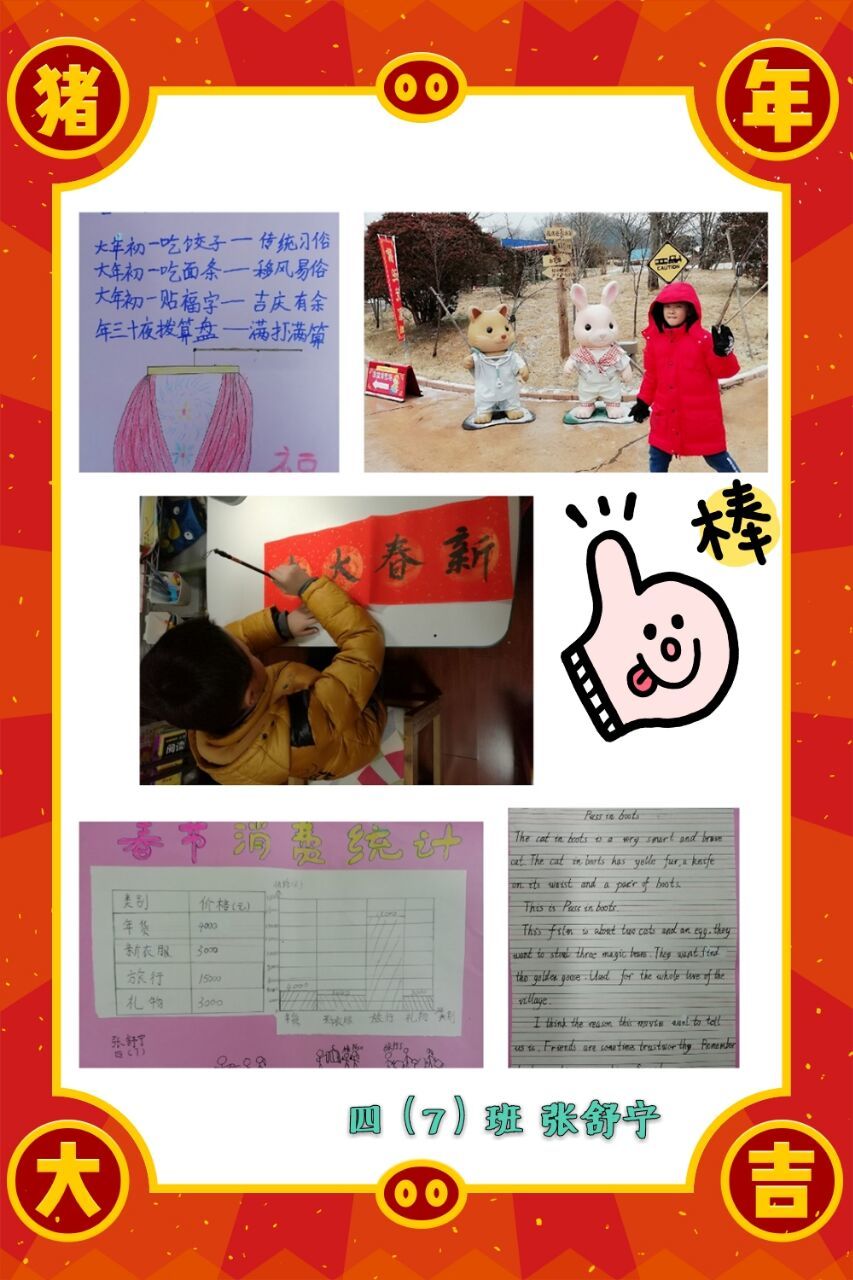 猪
年
大年初一吃饺子一 传统习俗
大年初一吃面条一 移风易俗
大年初一贴福字一 吉庆有余
年三十夜拨算盘 一满打满算
CAUTION
棒
大春新
阅读
春节消费统计
类别 价格(元)
年货 4000
新衣服 3000
旅行 15000
礼物 3000
4000
15000
3000
年货 新衣服 旅行 礼物 类别
张舒宁
四(7)
Puss in boots
The cat in boots is a very smart and brave
cat. The cat in boots has yelle fur, a knife
on its waist and a pair of boots.
This is Puss in boots.
This film is about two cats and an egg. they
want to steal three magic beans. They want find
the golden goose. Used for the whole live of the
village.
I think the reason this movie want to tell
us is. Friends are sometimes trustworthy. Remember
四（7）班 张舒宁
大
吉